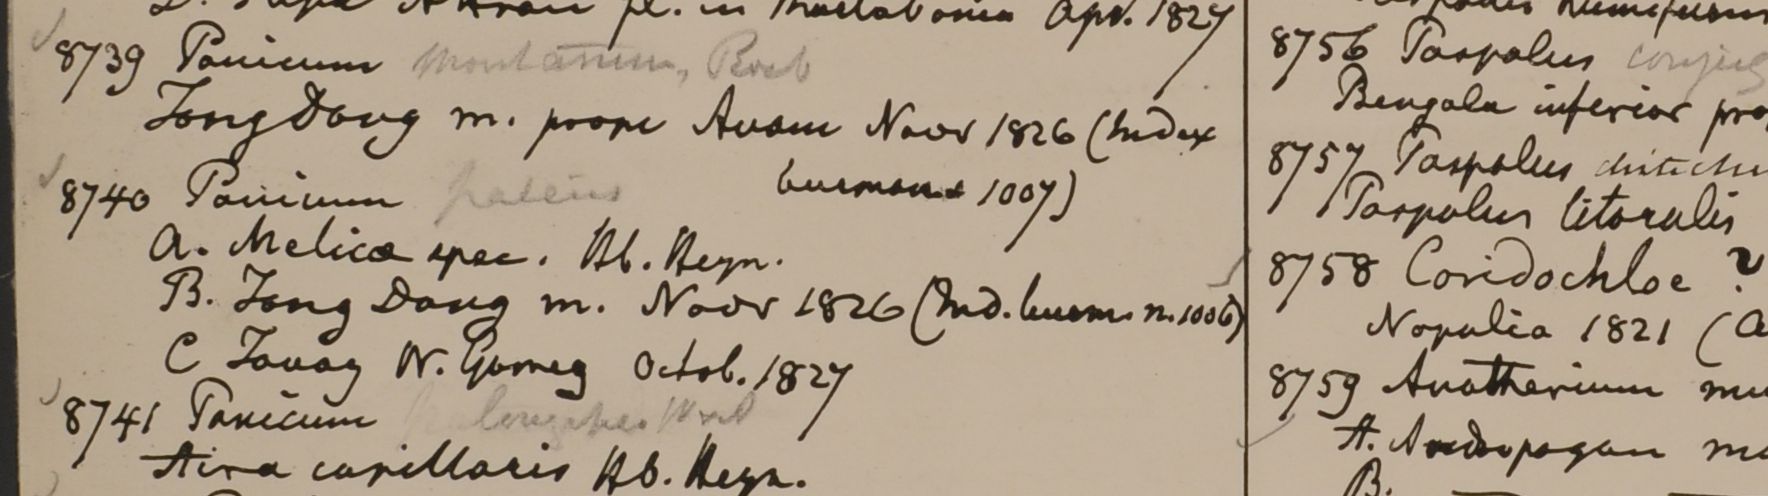 Apr. 1827
8739 Panicum montanum, Roxb
Tong Dong m. prope Avam Novr 1826 (Index
burman. 1007)
8740 Panicum patens
A. Melicæ spec. Hb. Heyn.
B. Tong Dong m. Novr 1826 (Ind. burm. n. 1006)
C Tavoy W. Gomez Octob. 1827
8741 Panicum
Aira capillaris Hb. Heyn.
8756 Paspalus conjug
Bengala inferior pro
8757 Paspalus distichu
Paspalus litoralis
8758 Coridochloe ?
Napalia 1821 (a
8759 Anatherium mu
A. Andropogon mu
B.